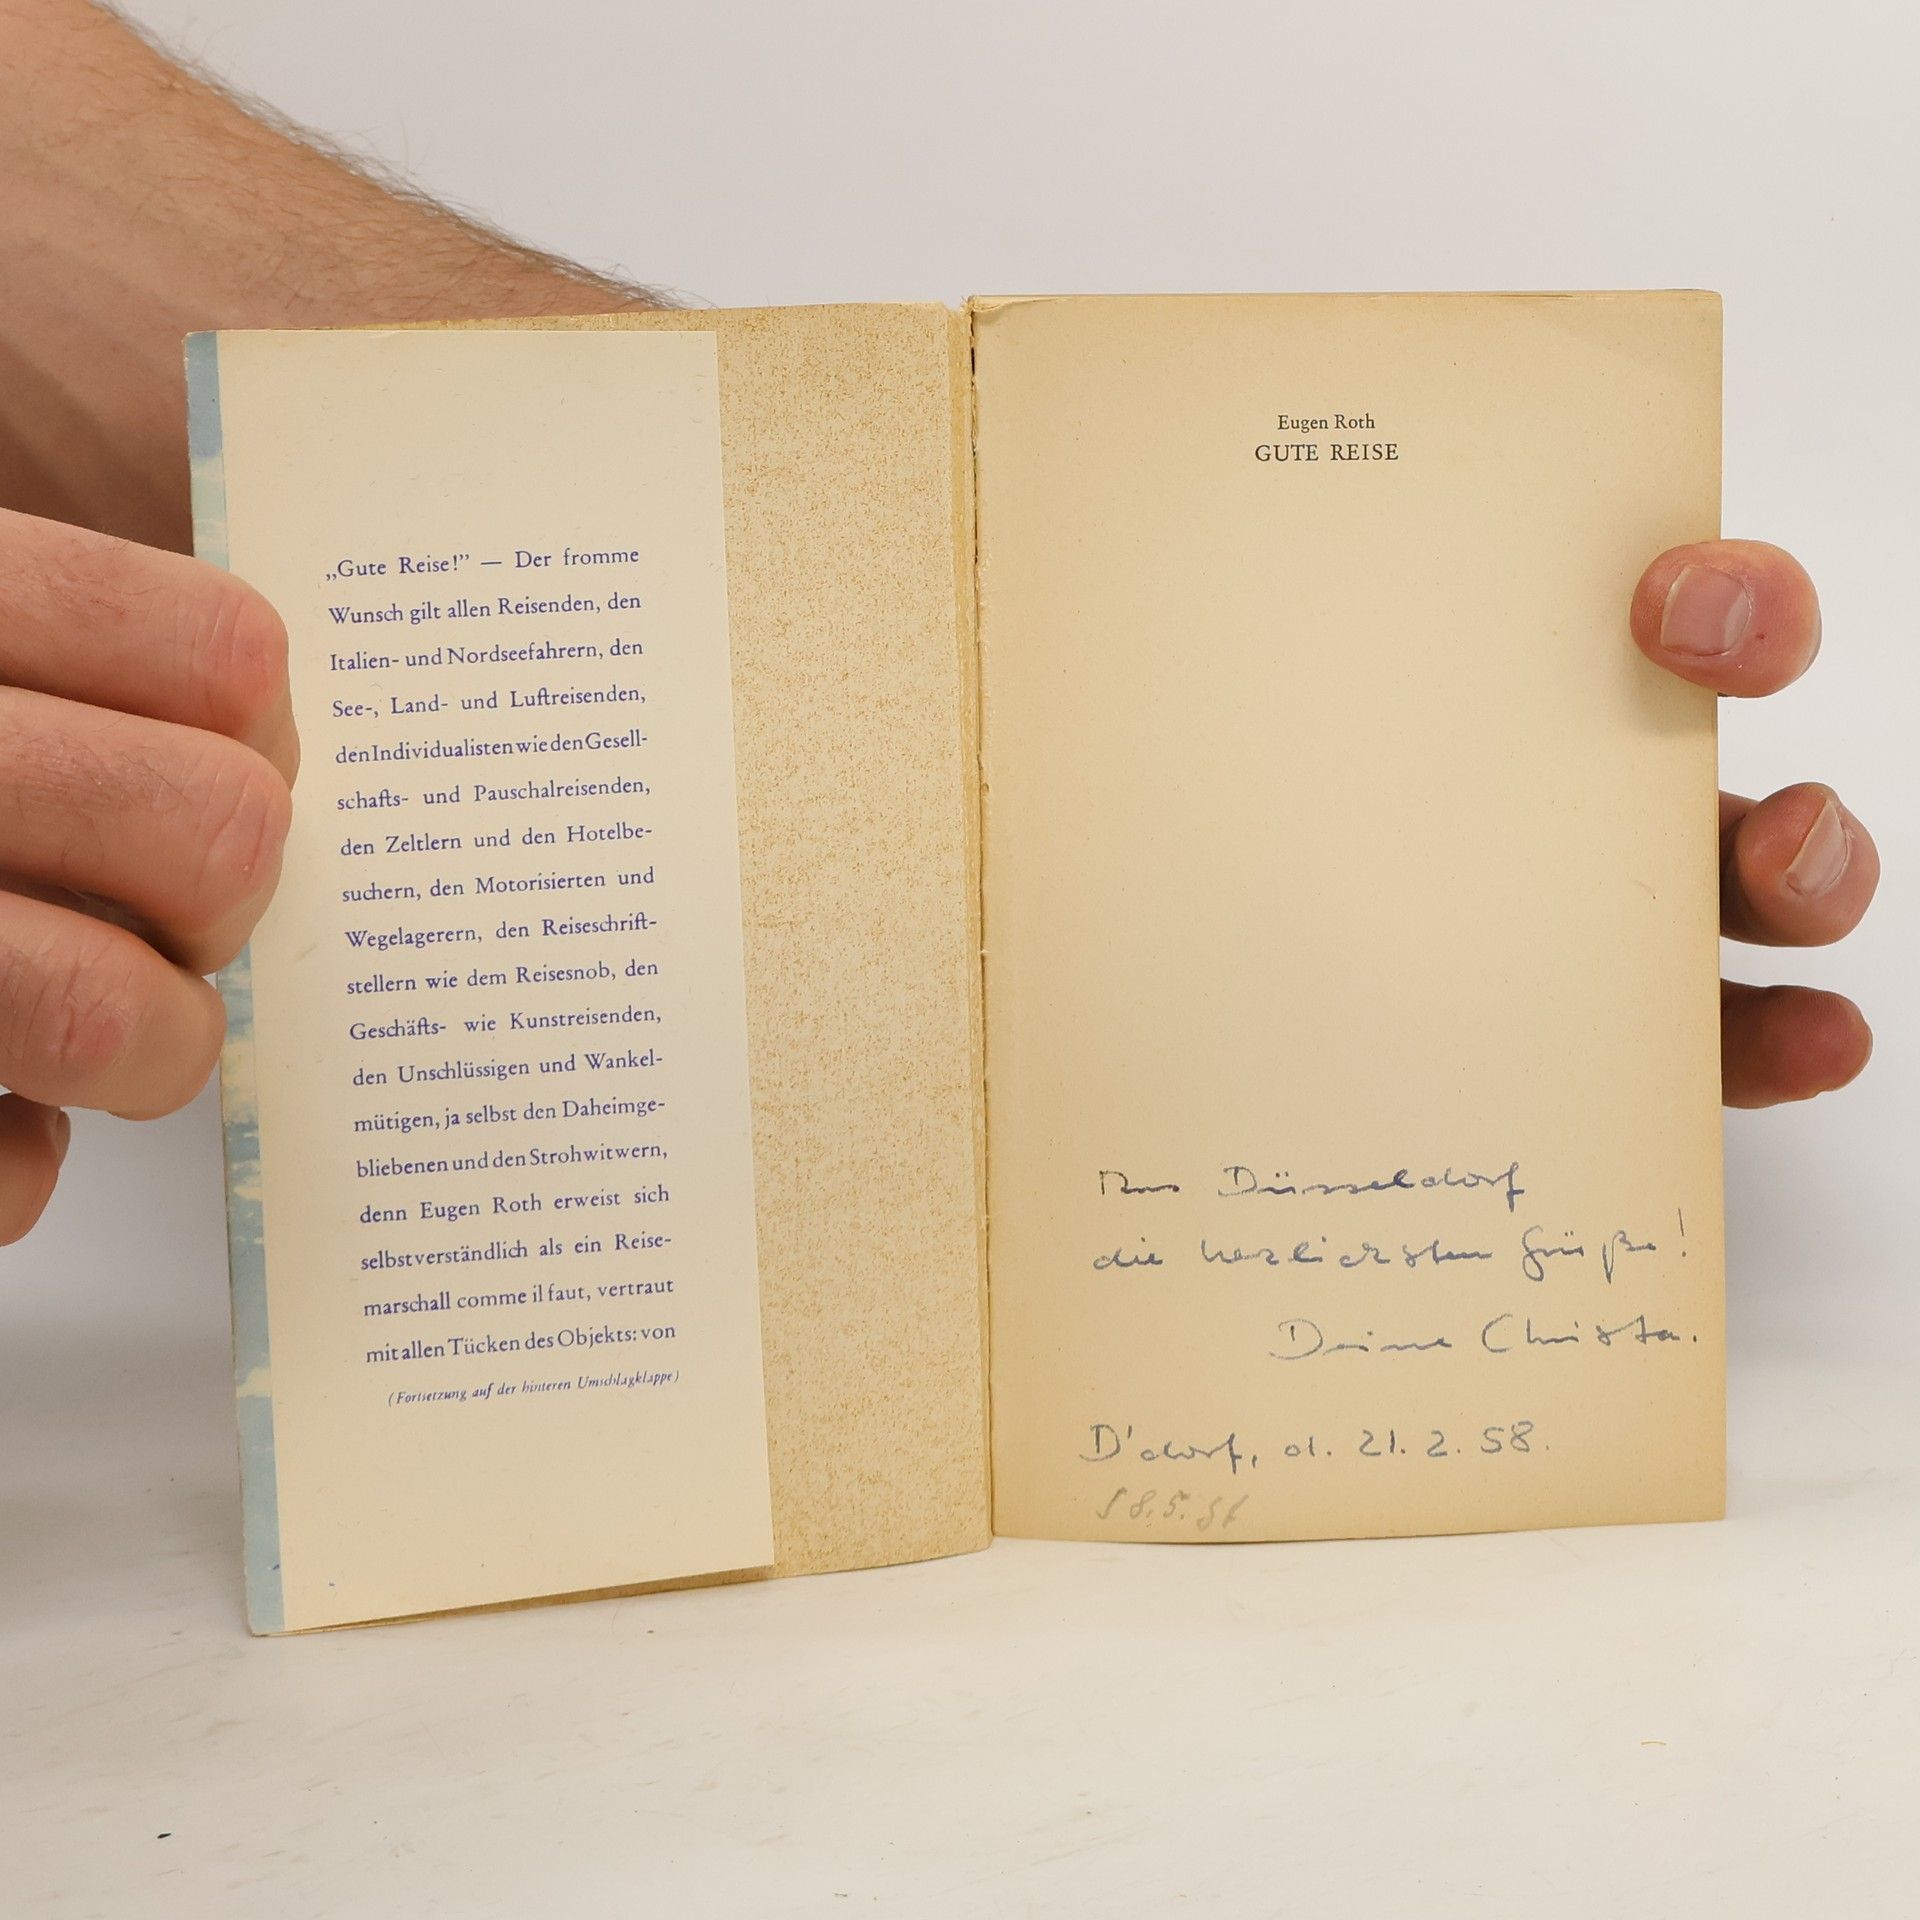 „Gute Reise!” — Der fromme
Wunsch gilt allen Reisenden, den
Italien- und Nordseefahrern, den
See-, Land- und Luftreisenden,
den Individualisten wie den Gesell-
schafts- und Pauschalreisenden,
den Zeltlern und den Hotelbe-
suchern, den Motorisierten und
Wegelagerern, den Reiseschrift-
stellern wie dem Reisesnob, den
Geschäfts- wie Kunstreisenden,
den Unschlüssigen und Wankel-
mütigen, ja selbst den Daheimge-
bliebenen und den Strohwitwern,
denn Eugen Roth erweist sich
selbstverständlich als ein Reise-
marschall comme il faut, vertraut
mit allen Tücken des Objekts: von
(Fortsetzung auf der hinteren Umschlagklappe)
Eugen Roth
GUTE REISE
Aus Düsseldorf
die herzlichsten Grüße!
Deine Christa.
D'dorf, d. 21. 2. 58.